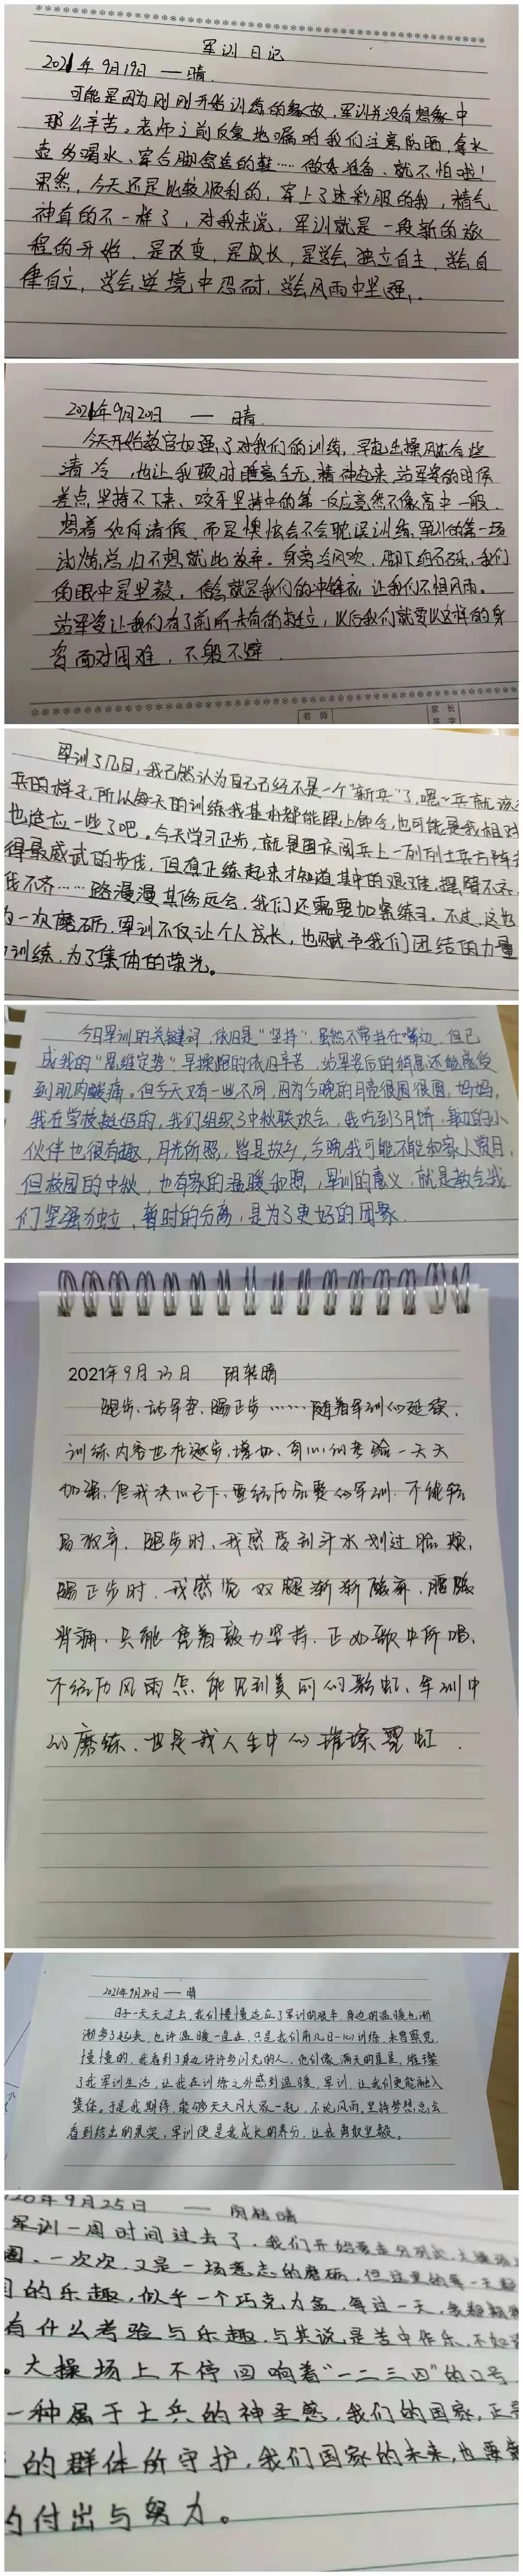 军训 日记
2021年 9月19日 — 晴
可能是因为刚刚开始训练的缘故，军训并没有想象中
那么辛苦。老师之前反复地嘱咐我们注意防晒、拿水
壶多喝水、穿合脚舒适的鞋……做好准备，就不怕啦！
果然，今天还是比较顺利的，穿上了迷彩服的我，精气
神真的不一样了，对我来说，军训就是一段新的旅
程的开始，是改变，是成长，是学会 独立自主，学会自
律自立，学会逆境中忍耐，学会风雨中坚强。
2021年9月20日 — 晴
今天开始教官加强了对我们的训练，早起出操风还有些
清冷，也让我顿时睡意全无，精神起来，站军姿的时候
差点坚持不下来，咬牙坚持中的第一反应竟然不像高中一般
想着如何请假，而是懊恼会不会耽误训练，军训的第一场
试炼，总归不想就此放弃。身旁冷风吹，脚下细石硌，我们
的眼中是坚毅，信念就是我们的冲锋衣，让我们不惧风雨。
站军姿让我们有了前所未有的挺立，以后我们就要以这样的身
姿面对困难，不躲不避
老师
家长
签字
军训了几日，我已然认为自己已经不是一个“新兵”了，嗯~兵就该
兵的样子，所以每天的训练我基本都能跟上命令，也可能是我相对
也适应一些了吧。今天学习正步，就是国庆阅兵上一列列士兵方阵
得最威武的步伐，但真正练起来才知道其中的艰难，摆臂不齐
伐不齐……路漫漫其修远兮，我们还需要加紧练习。不过，这也
为一次磨砺，军训不仅让个人成长，也赋予我们团结的力量
训练，为了集体的荣光。
今日军训的关键词，依旧是“坚持”，虽然不常挂在嘴边，但已
成我的“思维定势”早操跑的依旧辛苦，站军姿后的稍息还能感受
到肌肉酸痛。但今天又有一些不同，因为今晚的月亮很圆很圆，妈妈，
我在学校挺好的，我们组织了中秋联欢会，我吃到了月饼，身边的小
伙伴也很有趣，月光所照，皆是故乡，今晚我可能不能和家人赏月，
但校园的中秋，也有家的温暖和照，军训的意义，就是教会我
们坚强独立，暂时的分离，是为了更好的团聚
2021年9月23日 阴转晴
跑步、站军姿、踢正步……随着军训的延续，
训练内容也在逐步增加，身心的考验一天天
加强，但我决心已下，要经历完整的军训，不能轻
易放弃，跑步时，我感受到汗水划过脸颊，
踢正步时，我感觉双腿渐渐酸麻，腰酸
背痛，只能凭着毅力坚持，正如歌中所唱，
不经历风雨怎能见到美丽的彩虹，军训中
的磨练，也是我人生中的璀璨霓虹．
2021年9月24日 — 晴
日子一天天过去，我们慢慢适应了军训的艰辛，身边的温暖也渐
渐多了起来，也许温暖一直在，只是我们前几日一心训练，未曾察觉
慢慢的，我看到了身边许许多闪光的人，他们像满天的星星，璀璨
了我军训生活，让我在训练之外感到温暖，军训，让我们更能融入
集体。于是我期待，能够天天同大家一起，不论风雨，坚持梦想总会
看到结出的果实，军训便是我成长的养分，让我勇敢坚毅。
年9月25日 — 阴转晴
军训一周时间过去了，我们开始要走分列式，大操场
圈，一次次，又是一场意志的磨砺，但这里的每一天都
的乐趣，似乎一个巧克力盒，每过一天，
有什么考验与乐趣，与其说是苦中作乐，不如
。大操场上不停回响着“一二三四”的口号
一种属于士兵的神圣感，我们的国家，正
的群体所守护，我们国家的未来，也要
的付出与努力。